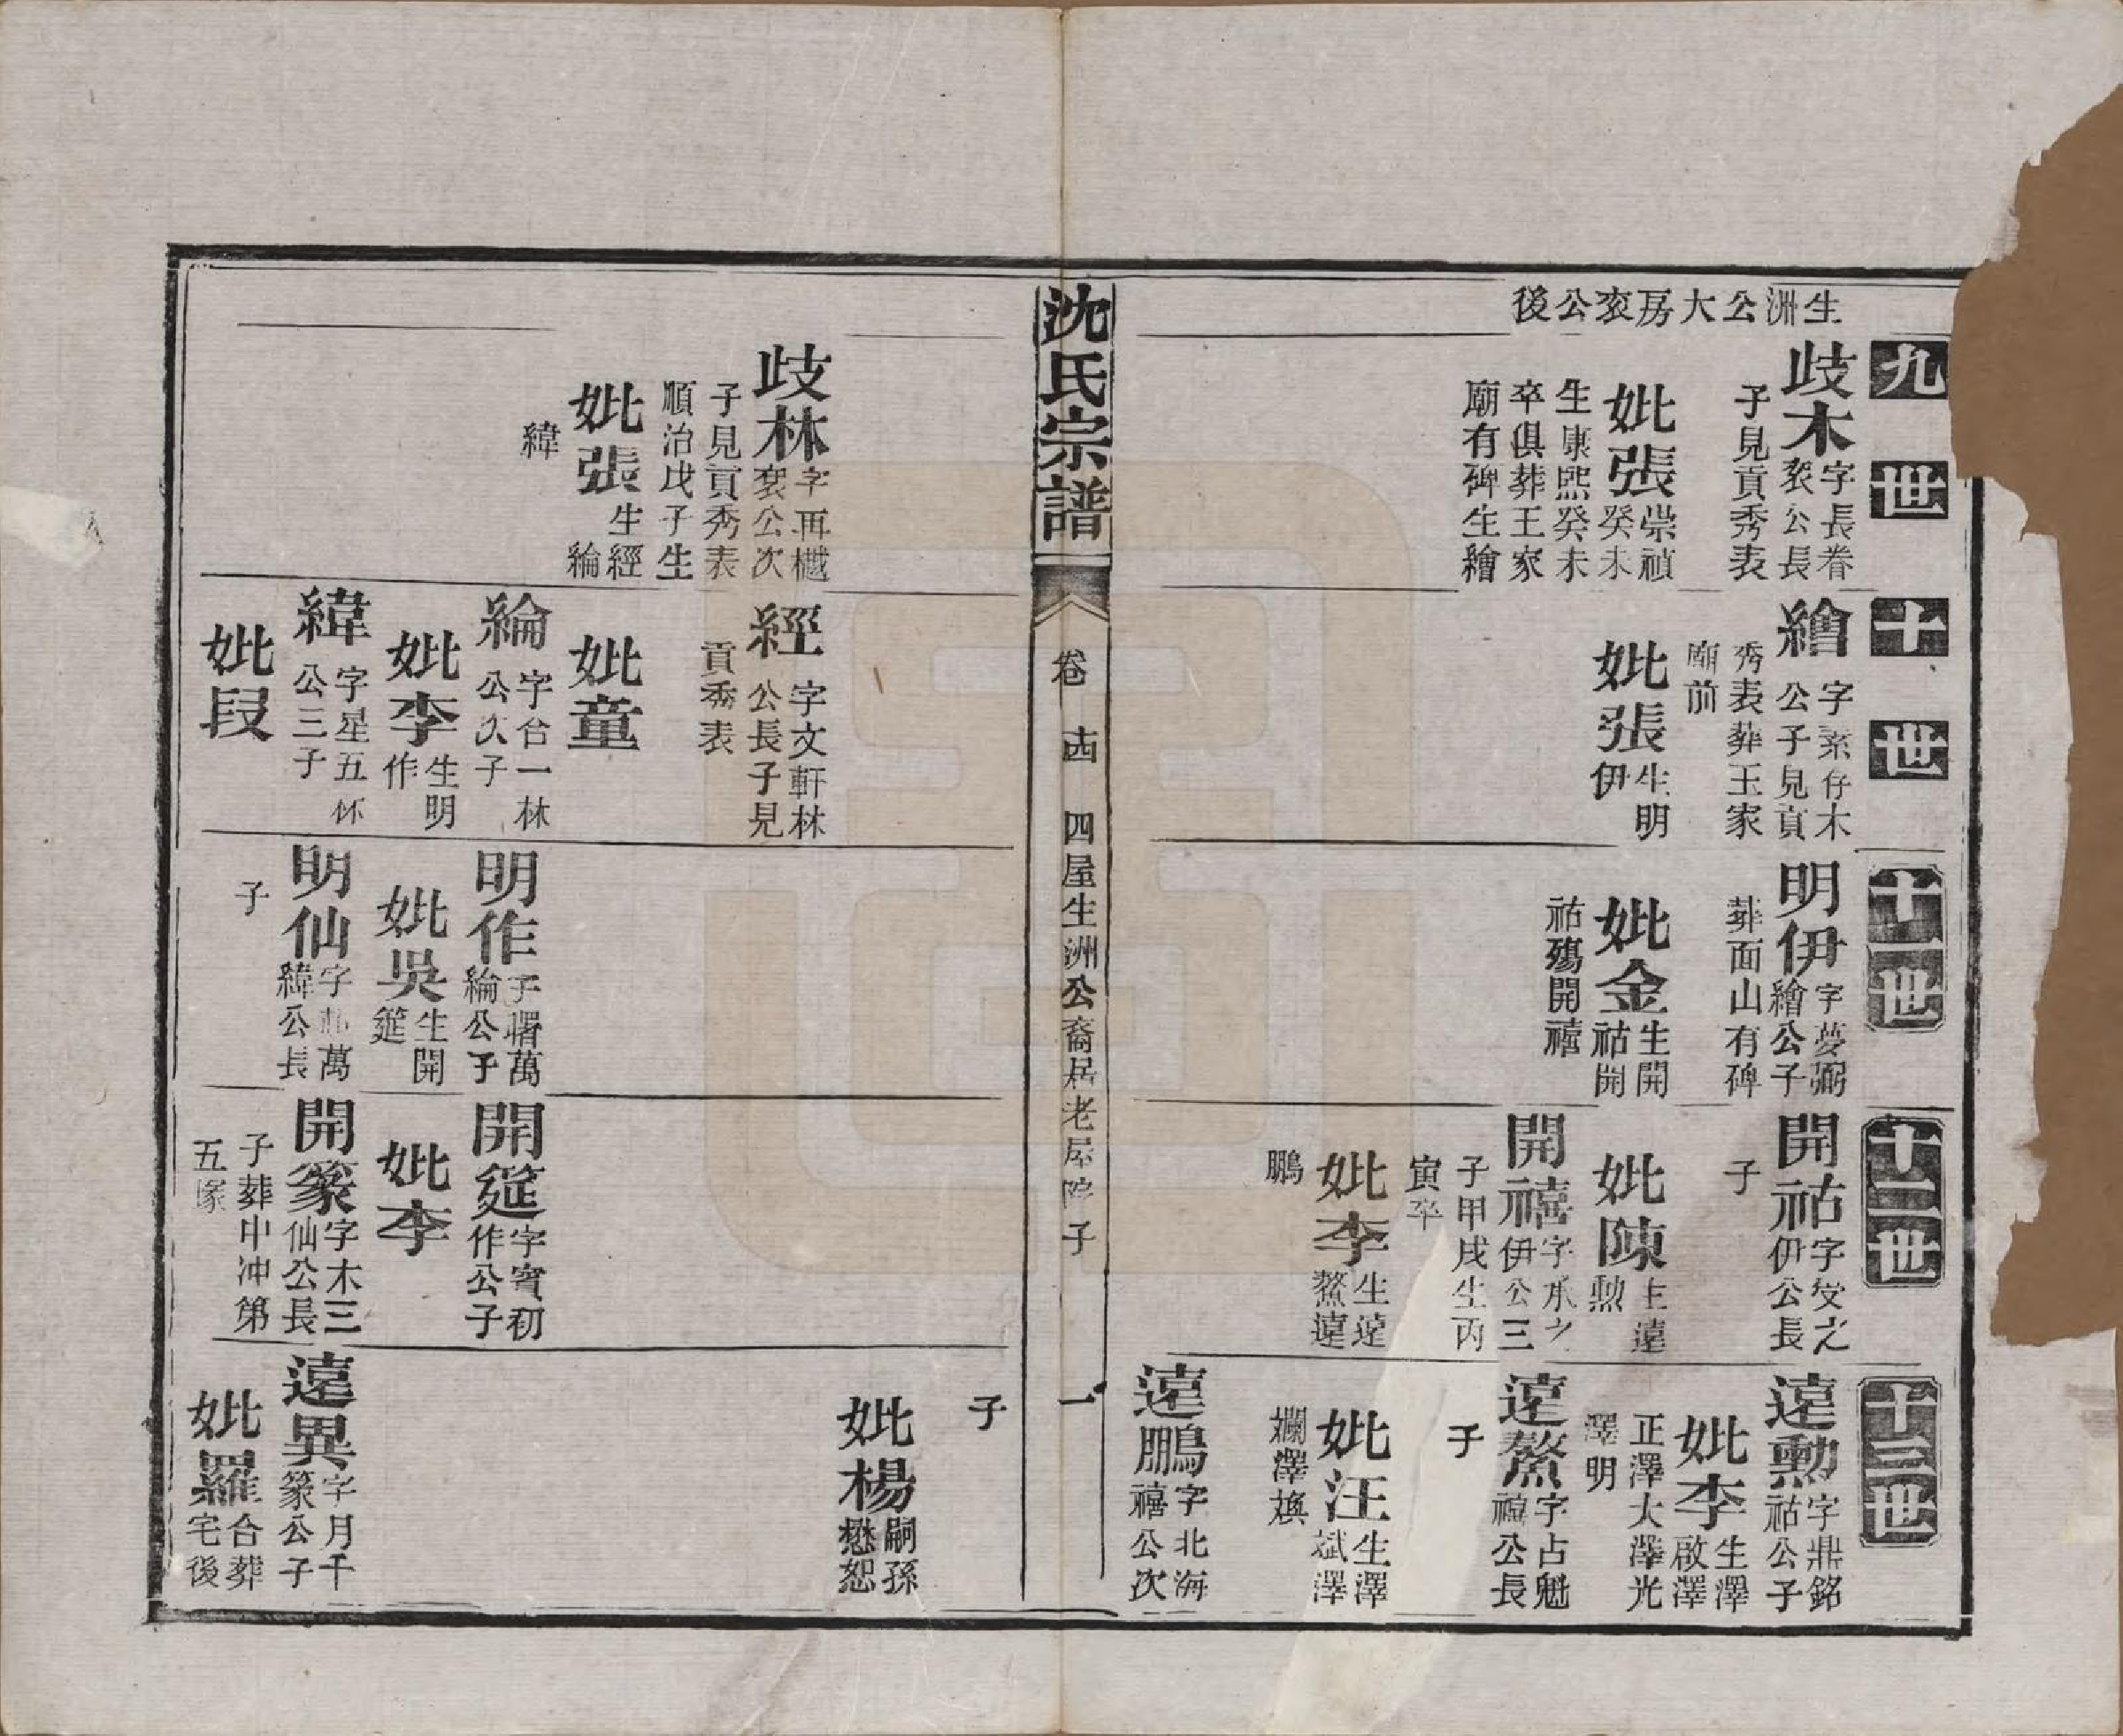 生洲公大房衮公後
九世
歧木
字長眷
衮公長
子見貢秀表
妣張
崇禎
癸未
生康熙癸未
卒俱葬王家
廟有碑生繪
十世
繪
字素存木
公子見貢
秀表葬王家
廟前
妣張
生明
伊
十一世
明伊
字夢弼
繪公子
葬面山有碑
妣金
生開
祜開
祜殤開禧
十二世
開祜
字受之
伊公長
子
妣陳
生遠
勲
開禧
字承之
伊公三
子甲戌生丙
寅卒
妣李
生遠
鰲遠
鵬
十三世
遠勲
字鼎銘
祜公子
妣李
生澤
啟澤
正澤大澤光
澤明
遠鰲
字占魁
禧公長
子
妣汪
生澤
斌澤
斕澤煥
遠鵬
字北海
禧公次
沈氏宗譜
卷十四
四屋生洲公裔居老屋院子
一
歧林
字再樾
衮公次
子見貢秀表
順治戊子生
妣張
生經
綸
緯
經
字文軒林
公長子見
貢秀表
妣童
綸
字台一林
公次子
妣李
生明
作
緯
字星五林
公三子
妣段
明作
字曙萬
綸公子
妣吳
生開
筵
明仙
萬
緯公長
子
開筵
字賓初
作公子
妣李
開篆
字木三
仙公長
子葬中冲第
五塚
子
妣楊
嗣孫
懋恕
遠異
字月千
篆公子
妣羅
合葬
宅後